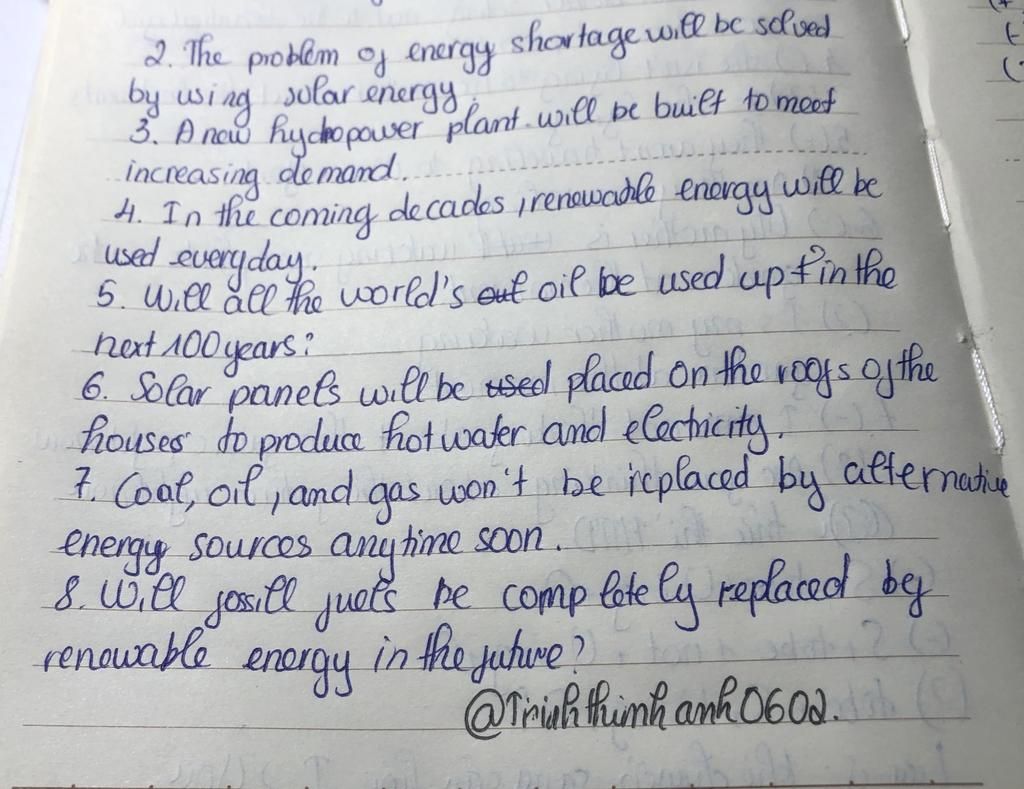 2. The problem of energy shortage will be solved
by using solar energy.
3. A new hydropower plant will be built to meet
increasing demand.
4. In the coming decades, renewable energy will be
used everyday.
5. Will all the world's out oil be used up in the
next 100 years?
6. Solar panels will be used placed on the roofs of the
houses to produce hot water and electricity.
7. Coal, oil, and gas won't be replaced by alternative
energy sources anytime soon.
8. Will fossill fuels be completely replaced by
renewable energy in the future?
@Trinhthiminhanh0602.